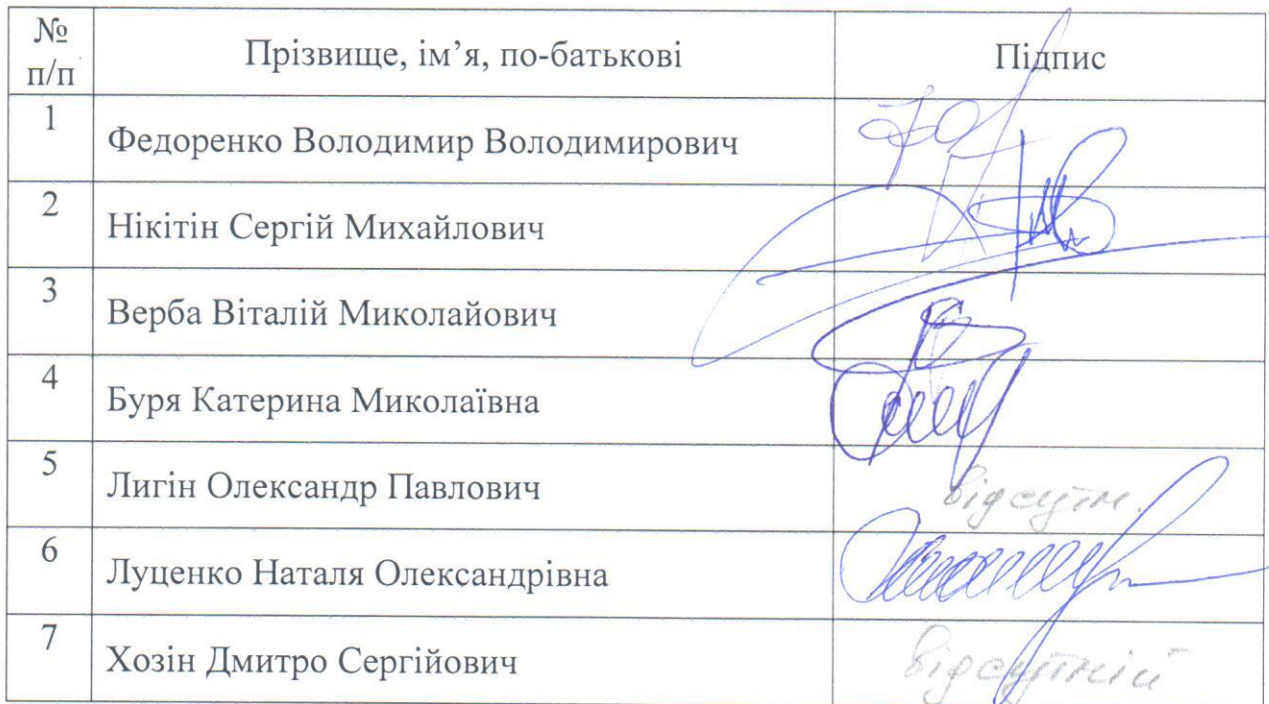 № п/п Прізвище, ім’я, по-батькові Підпис
1 Федоренко Володимир Володимирович
2 Нікітін Сергій Михайлович
3 Верба Віталій Миколайович
4 Буря Катерина Миколаївна
5 Лигін Олександр Павлович відсутн.
6 Луценко Наталя Олександрівна
7 Хозін Дмитро Сергійович відсутній